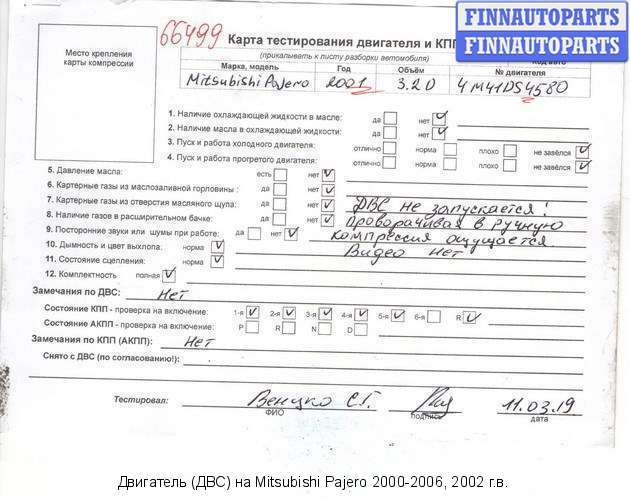 FINNAUTOPARTS
FINNAUTOPARTS
66499
Место крепления
карты компрессии
Карта тестирования двигателя и КПП
(прикалывать к листу разборки автомобиля)
Марка, модель Год Объём № двигателя
Mitsubishi Pajero 2001 3.2D 4M41DS4580
1. Наличие охлаждающей жидкости в масле: да нет ✓
2. Наличие масла в охлаждающей жидкости: да нет ✓
3. Пуск и работа холодного двигателя: отлично норма плохо не завёлся ✓
4. Пуск и работа прогретого двигателя: отлично норма плохо не завёлся ✓
5. Давление масла: есть нет ✓
6. Картерные газы из маслозаливной горловины : да нет ✓
7. Картерные газы из отверстия масляного щупа: да нет ✓ ДВС не запускается!
8. Наличие газов в расширительном бачке: да нет ✓ проворачивая в ручную
9. Посторонние звуки или шумы при работе: да нет ✓ компрессия ощущается
10. Дымность и цвет выхлопа: норма ✓ Видео нет
11. Состояние сцепления: норма ✓
12. Комплектность полная ✓
Замечания по ДВС: Нет
Состояние КПП - проверка на включение: 1-я ✓ 2-я ✓ 3-я ✓ 4-я ✓ 5-я ✓ 6-я R ✓
Состояние АКПП - проверка на включение: P R N D
Замечания по КПП (АКПП): Нет
Снято с ДВС (по согласованию!):
Тестировал: Венцко С.Г. 11.03.19
ФИО подпись дата
Двигатель (ДВС) на Mitsubishi Pajero 2000-2006, 2002 г.в.